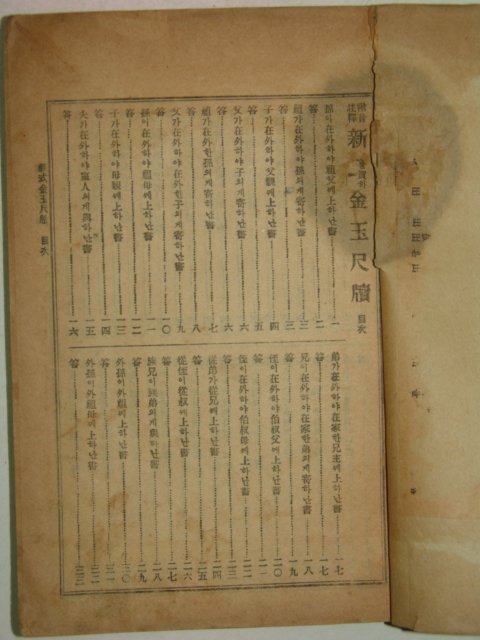 新
金玉尺牘 目次
孫이在外하야祖父에上하난書 一
答 二
祖가在外하야孫의게寄하난書 三
答 三
子가在外하야父親에上하난書 四
答 五
父가在外하야子의게寄하난書 六
答 六
祖가在外한孫의게寄하난書 七
答 八
父가在外하야在外한子의게寄하난書 九
答 一〇
孫이在外하야祖母에上하난書 一一
答 一二
子가在外하야母親에上하난書 一三
答 一四
夫가在外하야室人의게與하난書 一五
答 一六
弟가在外하야在家한兄主에上하난書 一七
答 一七
兄이在外하야在家한弟의게寄하난書 一八
答 一九
侄이在外하야伯叔父에上하난書 二〇
答 二一
侄이在外하야伯叔母에上하난書 二二
答 二三
從弟가從兄에上하난書 二四
答 二五
從侄이從叔에上하난書 二六
答 二七
族兄이族弟의게與하난書 二八
答 二九
外孫이外祖에上하난書 三〇
答 三一
外孫이外祖母에上하난書 三二
答 三三
新式金玉尺牘 目次